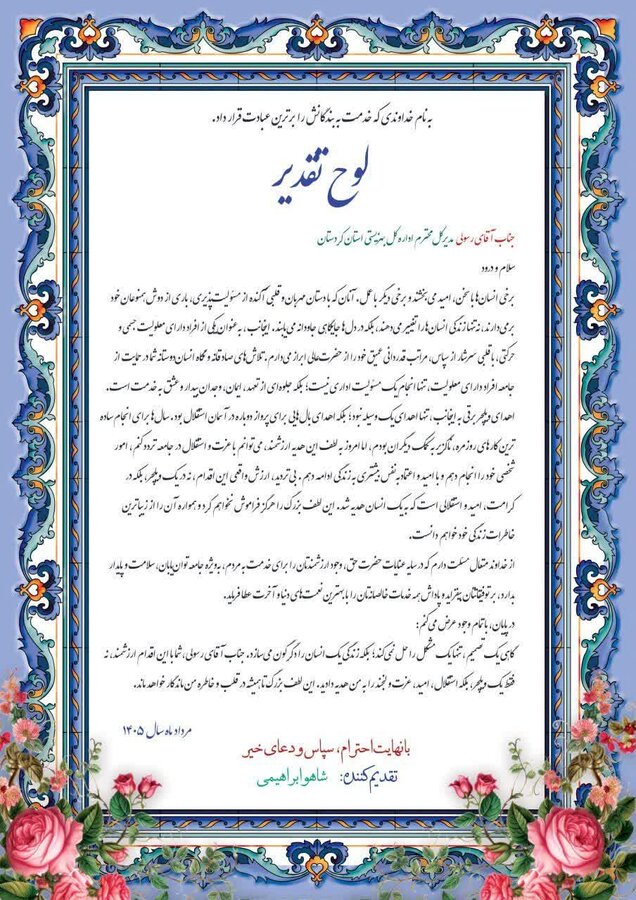 به نام خداوندی که خدمت به بندگانش را برترین عبادت قرار داد.
لوح تقدیر
جناب آقای رسولی مدیرکل محترم اداره کل بهزیستی استان کردستان
سلام و درود
برخی انسان‌ها با سخن، امید می‌بخشند و برخی دیگر با عمل. آنان که با دستان مهربان و قلبی آکنده از مسئولیت‌پذیری، باری از دوش همنوعان خود
برمی‌دارند، نه تنها زندگی انسان‌ها را تغییر می‌دهند، بلکه در دل‌ها جایگاهی جاودانه می‌یابند. اینجانب، به عنوان یکی از افراد دارای معلولیت جسمی و
حرکتی، با قلبی سرشار از سپاس، مراتب قدردانی عمیق خود را از حضرت‌عالی ابراز می‌دارم. تلاش‌های صادقانه و نگاه انسان‌دوستانه شما در حمایت از
جامعه افراد دارای معلولیت، تنها انجام یک مسئولیت اداری نیست؛ بلکه جلوه‌ای از تعهد، ایمان، وجدان بیدار و عشق به خدمت است.
اهدای ویلچر برقی به اینجانب، تنها اهدای یک وسیله نبود؛ بلکه اهدای بال‌هایی برای پرواز دوباره در آسمان استقلال بود. سال‌ها برای انجام ساده
ترین کارهای روزمره، ناگزیر به کمک دیگران بودم، اما امروز به لطف این هدیه ارزشمند، می‌توانم با عزت و استقلال در جامعه تردد کنم، امور
شخصی خود را انجام دهم و با امید و اعتماد به نفس بیشتری به زندگی ادامه دهم. بی‌تردید، ارزش واقعی این اقدام، نه در یک ویلچر، بلکه در
کرامت، امید و استقلالی است که به یک انسان هدیه شد. این لطف بزرگ را هرگز فراموش نخواهم کرد و همواره آن را از زیباترین
خاطرات زندگی خود خواهم دانست.
از خداوند متعال مسئلت دارم که در سایه عنایات حضرت حق، وجود ارزشمندتان را برای خدمت به مردم، به‌ویژه جامعه توان‌یابان، سلامت و پایدار
بدارد، بر توفیقاتتان بیفزاید و پاداش همه خدمات خالصانه‌تان را با بهترین نعمت‌های دنیا و آخرت عطا فرماید.
در پایان، با تمام وجود عرض می‌کنم:
گاهی یک تصمیم، تنها یک مشکل را حل نمی‌کند؛ بلکه زندگی یک انسان را دگرگون می‌سازد. جناب آقای رسولی، شما با این اقدام ارزشمند، نه
فقط یک ویلچر، بلکه استقلال، امید، عزت و لبخند را به من هدیه دادید. این لطف بزرگ تا همیشه در قلب و خاطره من ماندگار خواهد ماند.
مرداد ماه سال ۱۴۰۵
با نهایت احترام، سپاس و دعای خیر
تقدیم‌کننده: شاهو ابراهیمی